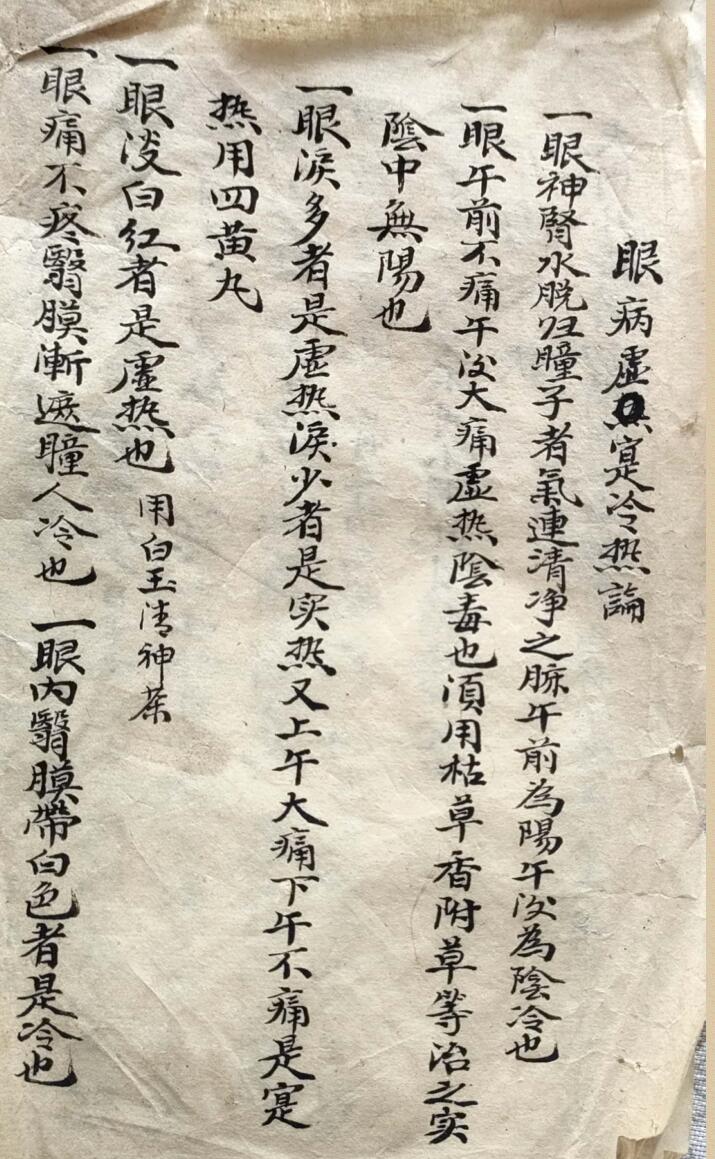 眼病虚寔冷热論
一眼神腎水脱归瞳子者氣連清净之脉午前為陽午后為陰冷也
一眼午前不痛午后大痛虚热陰毒也須用枯草香附草等治之实
陰中無陽也
一眼淚多者是虚热淚少者是实热又上午大痛下午不痛是寔
热用四黄丸
一眼淡白红者是虚热也 用白玉清神茶
一眼痛不疼翳膜漸遮瞳人冷也 一眼内翳膜帶白色者是冷也